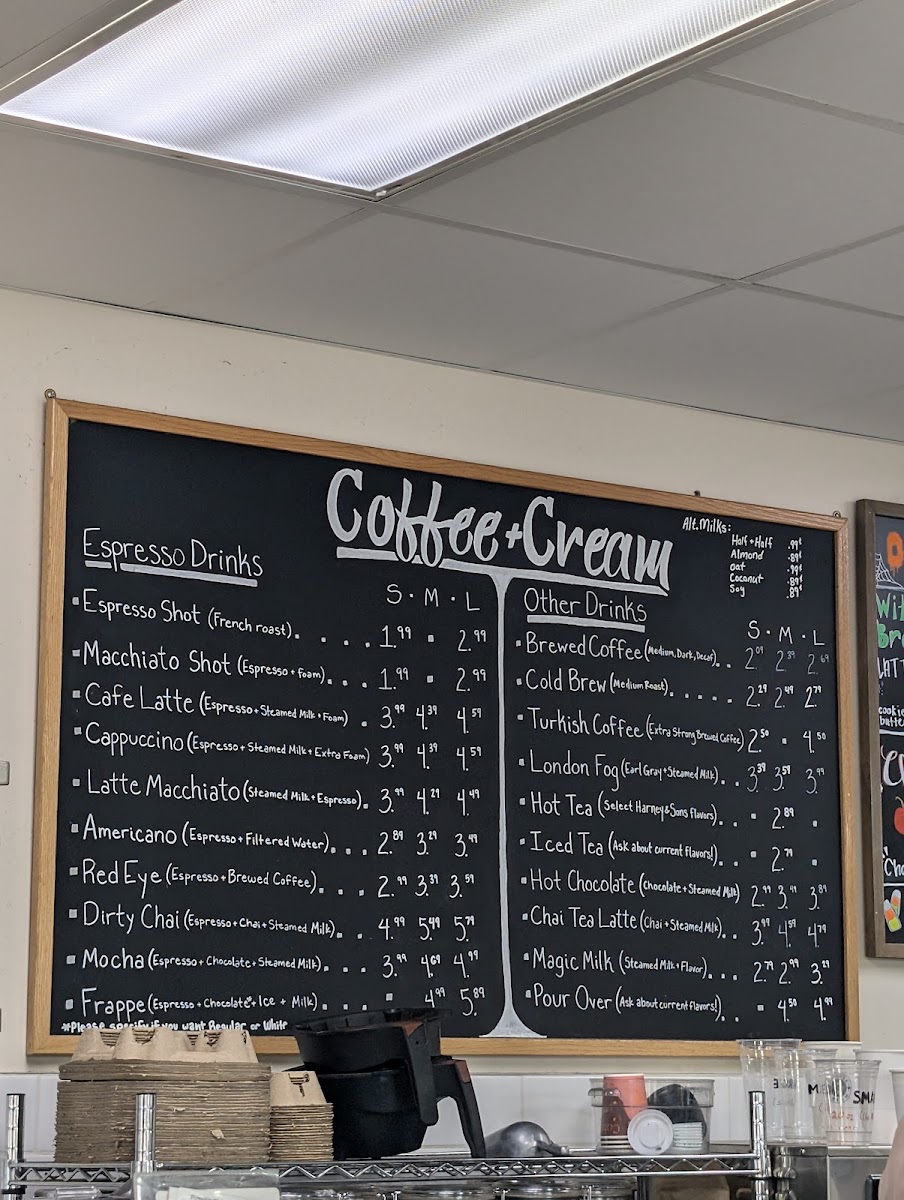 Coffee + Cream
Alt. Milks:
Half + Half .99¢
Almond .89¢
Oat .99¢
Coconut .89¢
Soy .89¢
Espresso Drinks
S · M · L
Espresso Shot (French roast). . . . . 1.99 - 2.99
Macchiato Shot (Espresso + foam). . . . 1.99 - 2.99
Cafe Latte (Espresso + Steamed Milk + Foam) . 3.99 4.39 4.59
Cappuccino (Espresso + Steamed Milk + Extra Foam) 3.99 4.39 4.59
Latte Macchiato (Steamed Milk + Espresso). 3.99 4.29 4.49
Americano (Espresso + Filtered Water). . . . 2.89 3.29 3.49
Red Eye (Espresso + Brewed Coffee). . . . 2.99 3.39 3.59
Dirty Chai (Espresso + Chai + Steamed Milk). . 4.99 5.49 5.79
Mocha (Espresso + Chocolate + Steamed Milk). . . . 3.99 4.69 4.99
Frappe (Espresso + Chocolate* + Ice + Milk) . . - 4.99 5.89
*Please specify if you want Regular or White
Other Drinks
S · M · L
Brewed Coffee (Medium, Dark, Decaf). . 2.09 2.39 2.69
Cold Brew (Medium Roast). . . . . 2.29 2.49 2.79
Turkish Coffee (Extra Strong Brewed Coffee) 2.50 - 4.50
London Fog (Earl Gray + Steamed Milk). . 3.39 3.59 3.99
Hot Tea (Select Harney & Sons flavors). . - 2.89 -
Iced Tea (Ask about current flavors!). . - 2.79 -
Hot Chocolate (Chocolate + Steamed Milk) 2.99 3.49 3.89
Chai Tea Latte (Chai + Steamed Milk). . 3.99 4.59 4.79
Magic Milk (Steamed Milk + Flavor). . . 2.79 2.99 3.29
Pour Over (Ask about current flavors!). . - 4.50 4.99